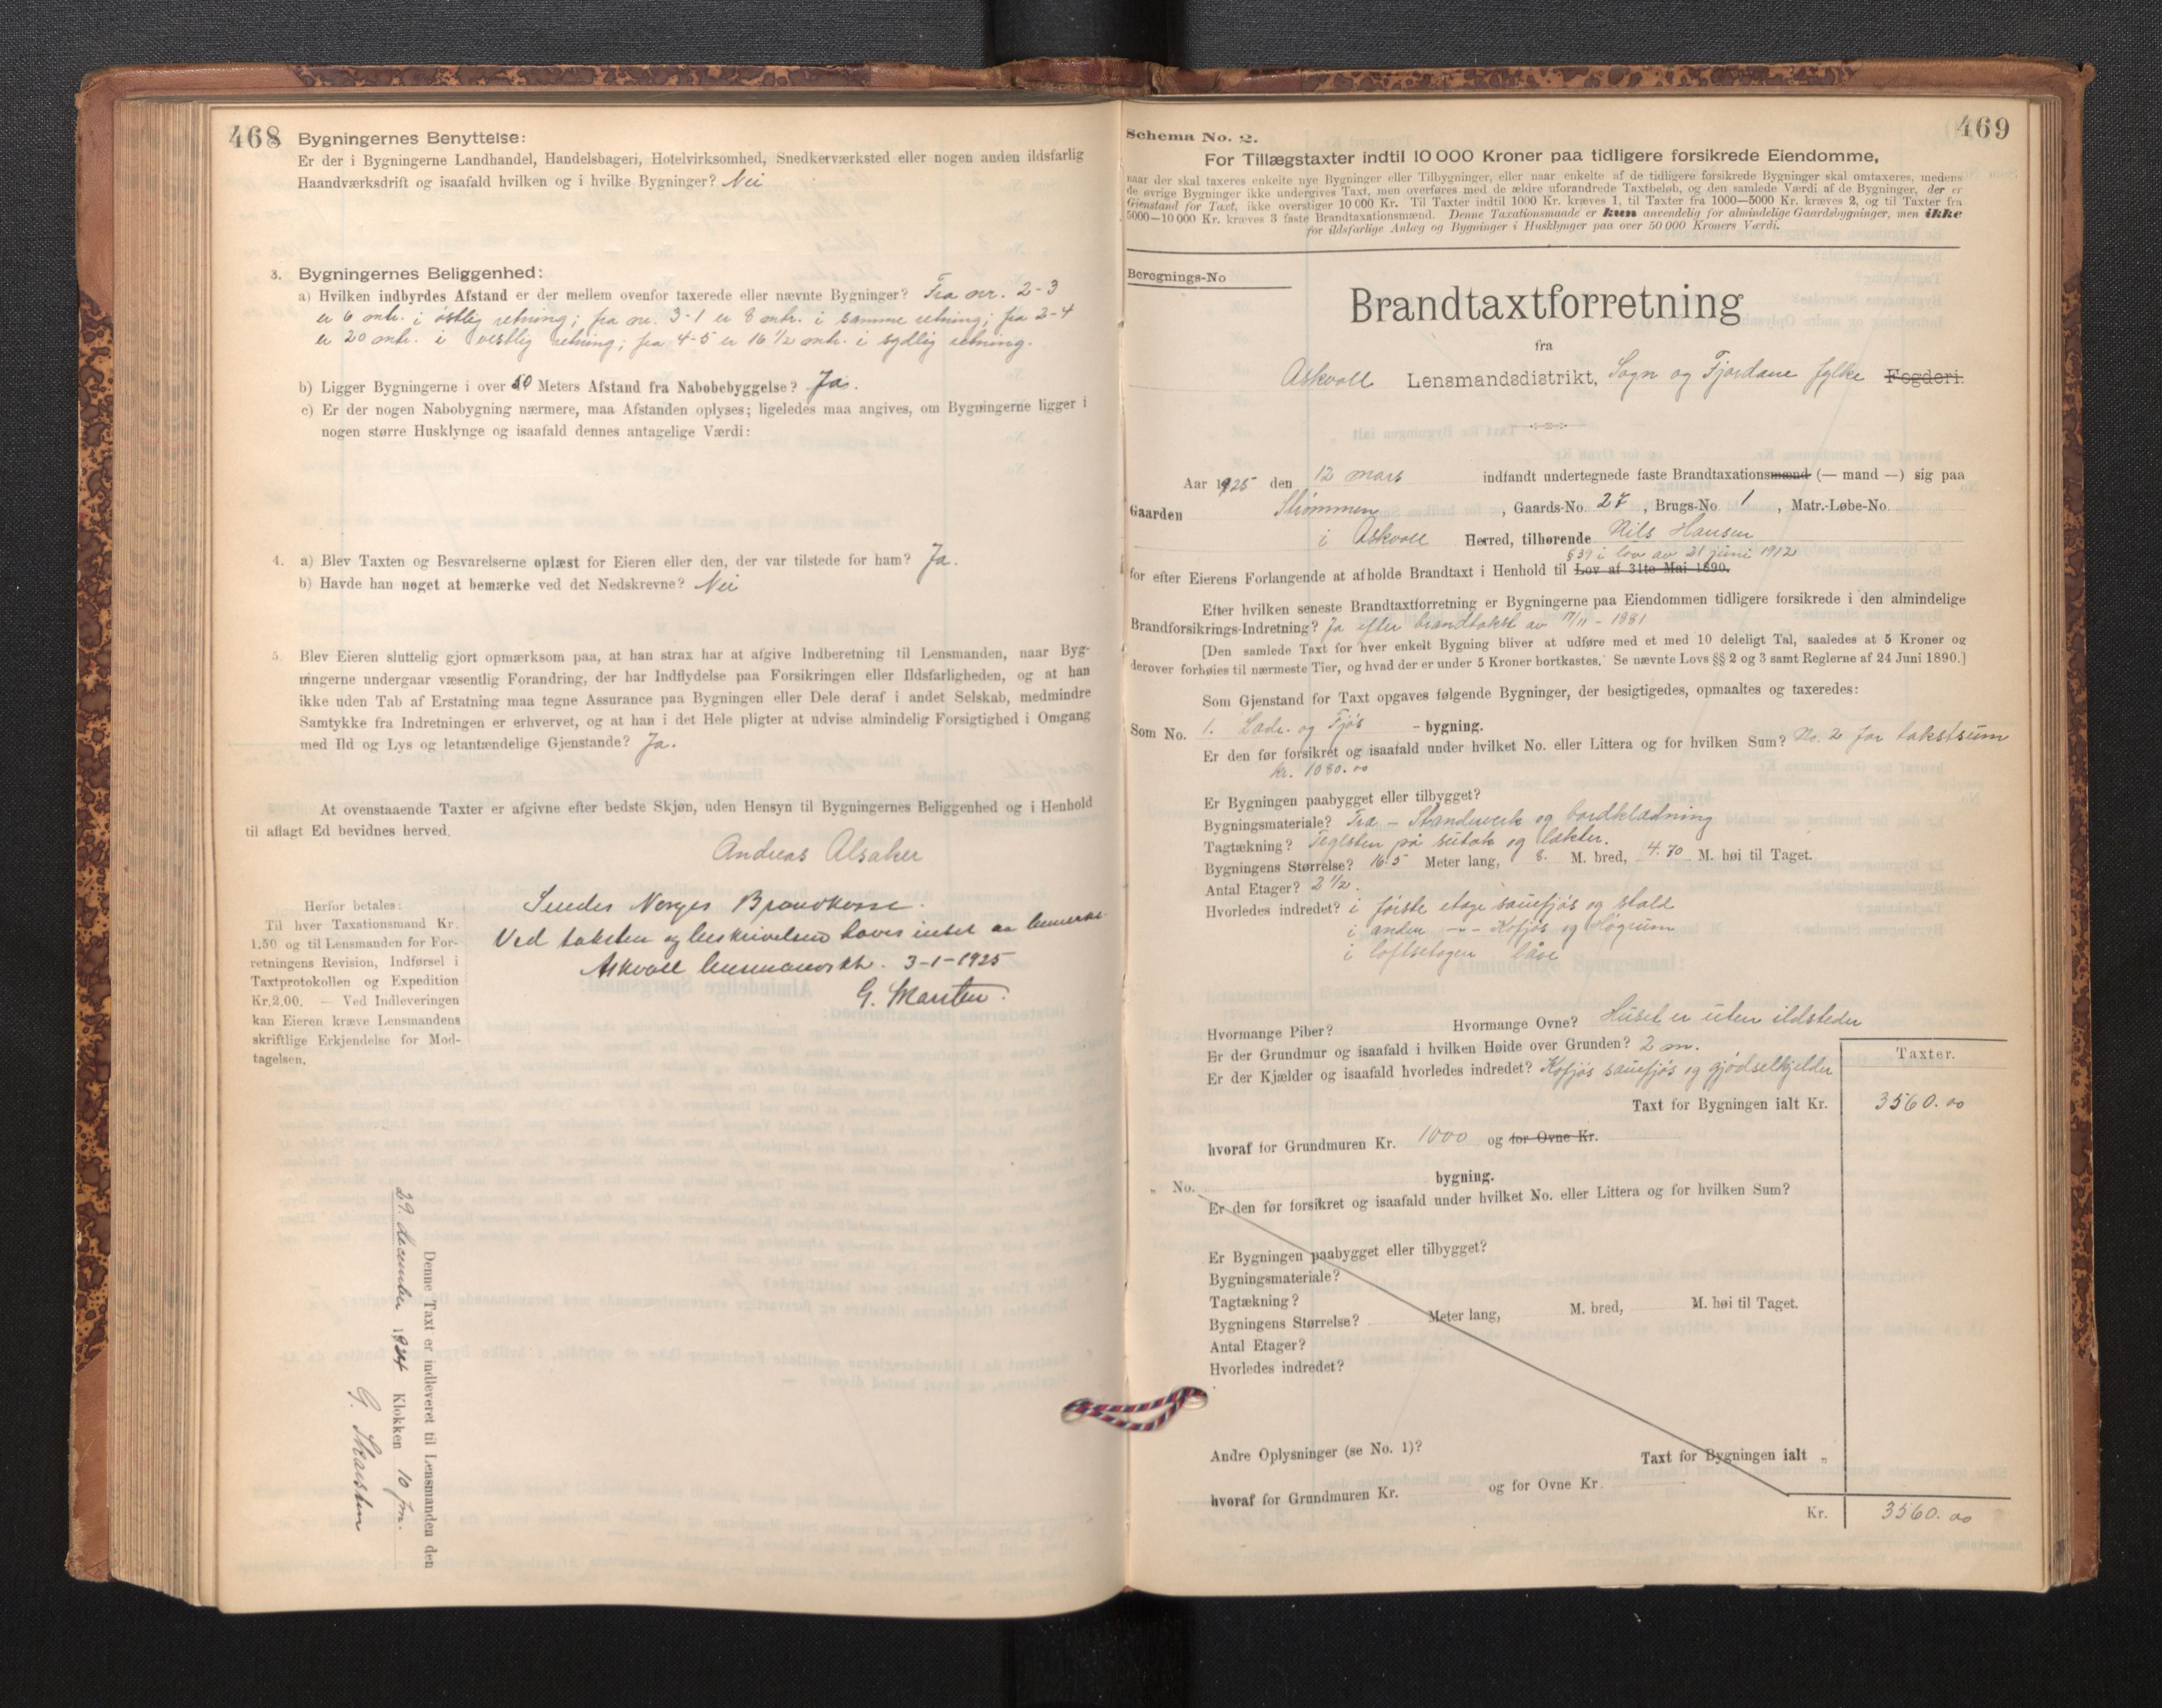 468
Bygningernes Benyttelse:
Er der i Bygningerne Landhandel, Handelsbageri, Hotelvirksomhed, Snedkerværksted eller nogen anden ildsfarlig
Haandværksdrift og isaafald hvilken og i hvilke Bygninger? Nei
3. Bygningernes Beliggenhed:
a) Hvilken indbyrdes Afstand er der mellem ovenfor taxerede eller nævnte Bygninger? Fra nr. 2-3
er 6 mtr. i østlig retning; fra nr. 3-1 er 8 mtr. i samme retning; fra 2-4
er 20 mtr. i vestlig retning; fra 4-5 er 16 1/2 mtr. i sydlig retning.
b) Ligger Bygningerne i over 50 Meters Afstand fra Nabobebyggelse? Ja.
c) Er der nogen Nabobygning nærmere, maa Afstanden oplyses; ligeledes maa angives, om Bygningerne ligger i
nogen større Husklynge og isaafald dennes antagelige Værdi:
4. a) Blev Taxten og Besvarelserne oplæst for Eieren eller den, der var tilstede for ham? Ja.
b) Havde han noget at bemærke ved det Nedskrevne? Nei
5. Blev Eieren sluttelig gjort opmærksom paa, at han strax har at afgive Indberetning til Lensmanden, naar Byg-
ningerne undergaar væsentlig Forandring, der har Indflydelse paa Forsikringen eller Ildsfarligheden, og at han
ikke uden Tab af Erstatning maa tegne Assurance paa Bygningen eller Dele deraf i andet Selskab, medmindre
Samtykke fra Indretningen er erhvervet, og at han i det Hele pligter at udvise almindelig Forsigtighed i Omgang
med Ild og Lys og letantændelige Gjenstande? Ja.
At ovenstaaende Taxter er afgivne efter bedste Skjøn, uden Hensyn til Bygningernes Beliggenhed og i Henhold
til aflagt Ed bevidnes herved.
Andreas Alsaker
Herfor betales:
Til hver Taxationsmand Kr.
1.50 og til Lensmanden for For-
retningens Revision, Indførsel i
Taxtprotokollen og Expedition
Kr. 2.00. — Ved Indleveringen
kan Eieren kræve Lensmandens
skriftlige Erkjendelse for Mod-
tagelsen.
Sendes Norges Brandkasse.
Ved taksten og beskrivelsen haves intet at bemerke.
Askvoll lensmannskt. 3-1-1925
G.
Denne Taxt er indleveret til Lensmanden den
29. december 1924 Klokken 10 fm.
G.
469
Schema No. 2.
For Tillægstaxter indtil 10 000 Kroner paa tidligere forsikrede Eiendomme,
naar der skal taxeres enkelte nye Bygninger eller Tilbygninger, eller naar enkelte af de tidligere forsikrede Bygninger skal omtaxeres, medens
de øvrige Bygninger ikke undergives Taxt, men overføres med de ældre uforandrede Taxtbeløb, og den samlede Værdi af de Bygninger, der er
Gjenstand for Taxt, ikke overstiger 10 000 Kr. Til Taxter indtil 1000 Kr. kræves 1, til Taxter fra 1000—5000 Kr. kræves 2, og til Taxter fra
5000—10 000 Kr. kræves 3 faste Brandtaxationsmænd. Denne Taxationsmaade er kun anvendelig for almindelige Gaardsbygninger, men ikke
for ildsfarlige Anlæg og Bygninger i Husklynger paa over 50 000 Kroners Værdi.
Beregnings-No
Brandtaxtforretning
fra
Askvoll Lensmandsdistrikt, Sogn og Fjordane fylke Fogderi.
Aar 1925 den 12 mars indfandt undertegnede faste Brandtaxationsmænd (— mand —) sig paa
Gaarden Strømmen, Gaards-No. 27, Brugs-No. 1, Matr.-Løbe-No.
i Askvoll Herred, tilhørende Nils Hansen
§ 39 i lov av 21 juni 1912
for efter Eierens Forlangende at afholde Brandtaxt i Henhold til Lov af 31te Mai 1890.
Efter hvilken seneste Brandtaxtforretning er Bygningerne paa Eiendommen tidligere forsikrede i den almindelige
Brandforsikrings-Indretning? Ja efter brandtakst av 17/11 - 1881
[Den samlede Taxt for hver enkelt Bygning bliver at udføre med et med 10 deleligt Tal, saaledes at 5 Kroner og
derover forhøies til nærmeste Tier, og hvad der er under 5 Kroner bortkastes. Se nævnte Lovs §§ 2 og 3 samt Reglerne af 24 Juni 1890.]
Som Gjenstand for Taxt opgaves følgende Bygninger, der besigtigedes, opmaaltes og taxeredes:
Som No. 1. Lade. og Fjøs - bygning.
Er den før forsikret og isaafald under hvilket No. eller Littera og for hvilken Sum? No. 2 for takstsum
kr. 1080.00
Er Bygningen paabygget eller tilbygget?
Bygningsmateriale? Træ - Standverk og bordklædning
Tagtækning? Teglsten på sutak og lækter.
Bygningens Størrelse? 16.5 Meter lang, 8. M. bred, 4.70 M. høi til Taget.
Antal Etager? 2 1/2.
Hvorledes indredet? i første etage sauefjøs og stald
i anden -"- Kofjøs og Høgrum
i loftsetagen låve
Hvormange Piber? Hvormange Ovne? Huset er uten ildsteder
Er der Grundmur og isaafald i hvilken Høide over Grunden? 2 m.
Er der Kjælder og isaafald hvorledes indredet? Kofjøs sauefjøs og gjødselkjelder
Taxter.
Taxt for Bygningen ialt Kr. 3560.00
hvoraf for Grundmuren Kr. 1000 og for Ovne Kr.
„ No. bygning.
Er den før forsikret og isaafald under hvilket No. eller Littera og for hvilken Sum?
Er Bygningen paabygget eller tilbygget?
Bygningsmateriale?
Tagtækning?
Bygningens Størrelse? Meter lang, M. bred, M. høi til Taget.
Antal Etager?
Hvorledes indredet?
Andre Oplysninger (se No. 1)? Taxt for Bygningen ialt „
hvoraf for Grundmuren Kr. og for Ovne Kr.
Kr. 3560.00